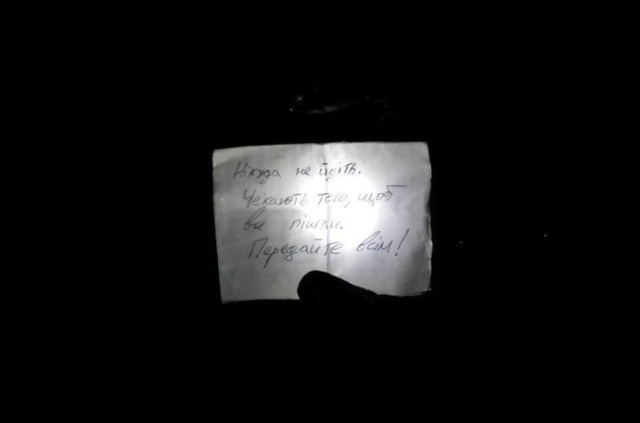 Нікуда не йдіть.
Чекають того, щоб
ви пішли.
Передайте всім!